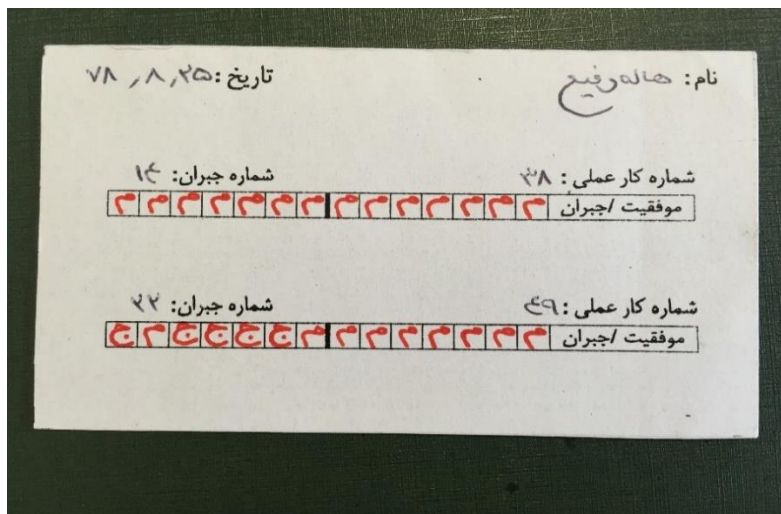 نام: هاله رفیع تاریخ: ۷۸٫۸٫۲۵
شماره کار عملی: ۳۸ شماره جبران: ۱۴
موفقیت /جبران م م م م م م م م م م م م م م
شماره کار عملی: ۴۹ شماره جبران: ۲۲
موفقیت /جبران م م م م م م م م ج ج ج ج م ج